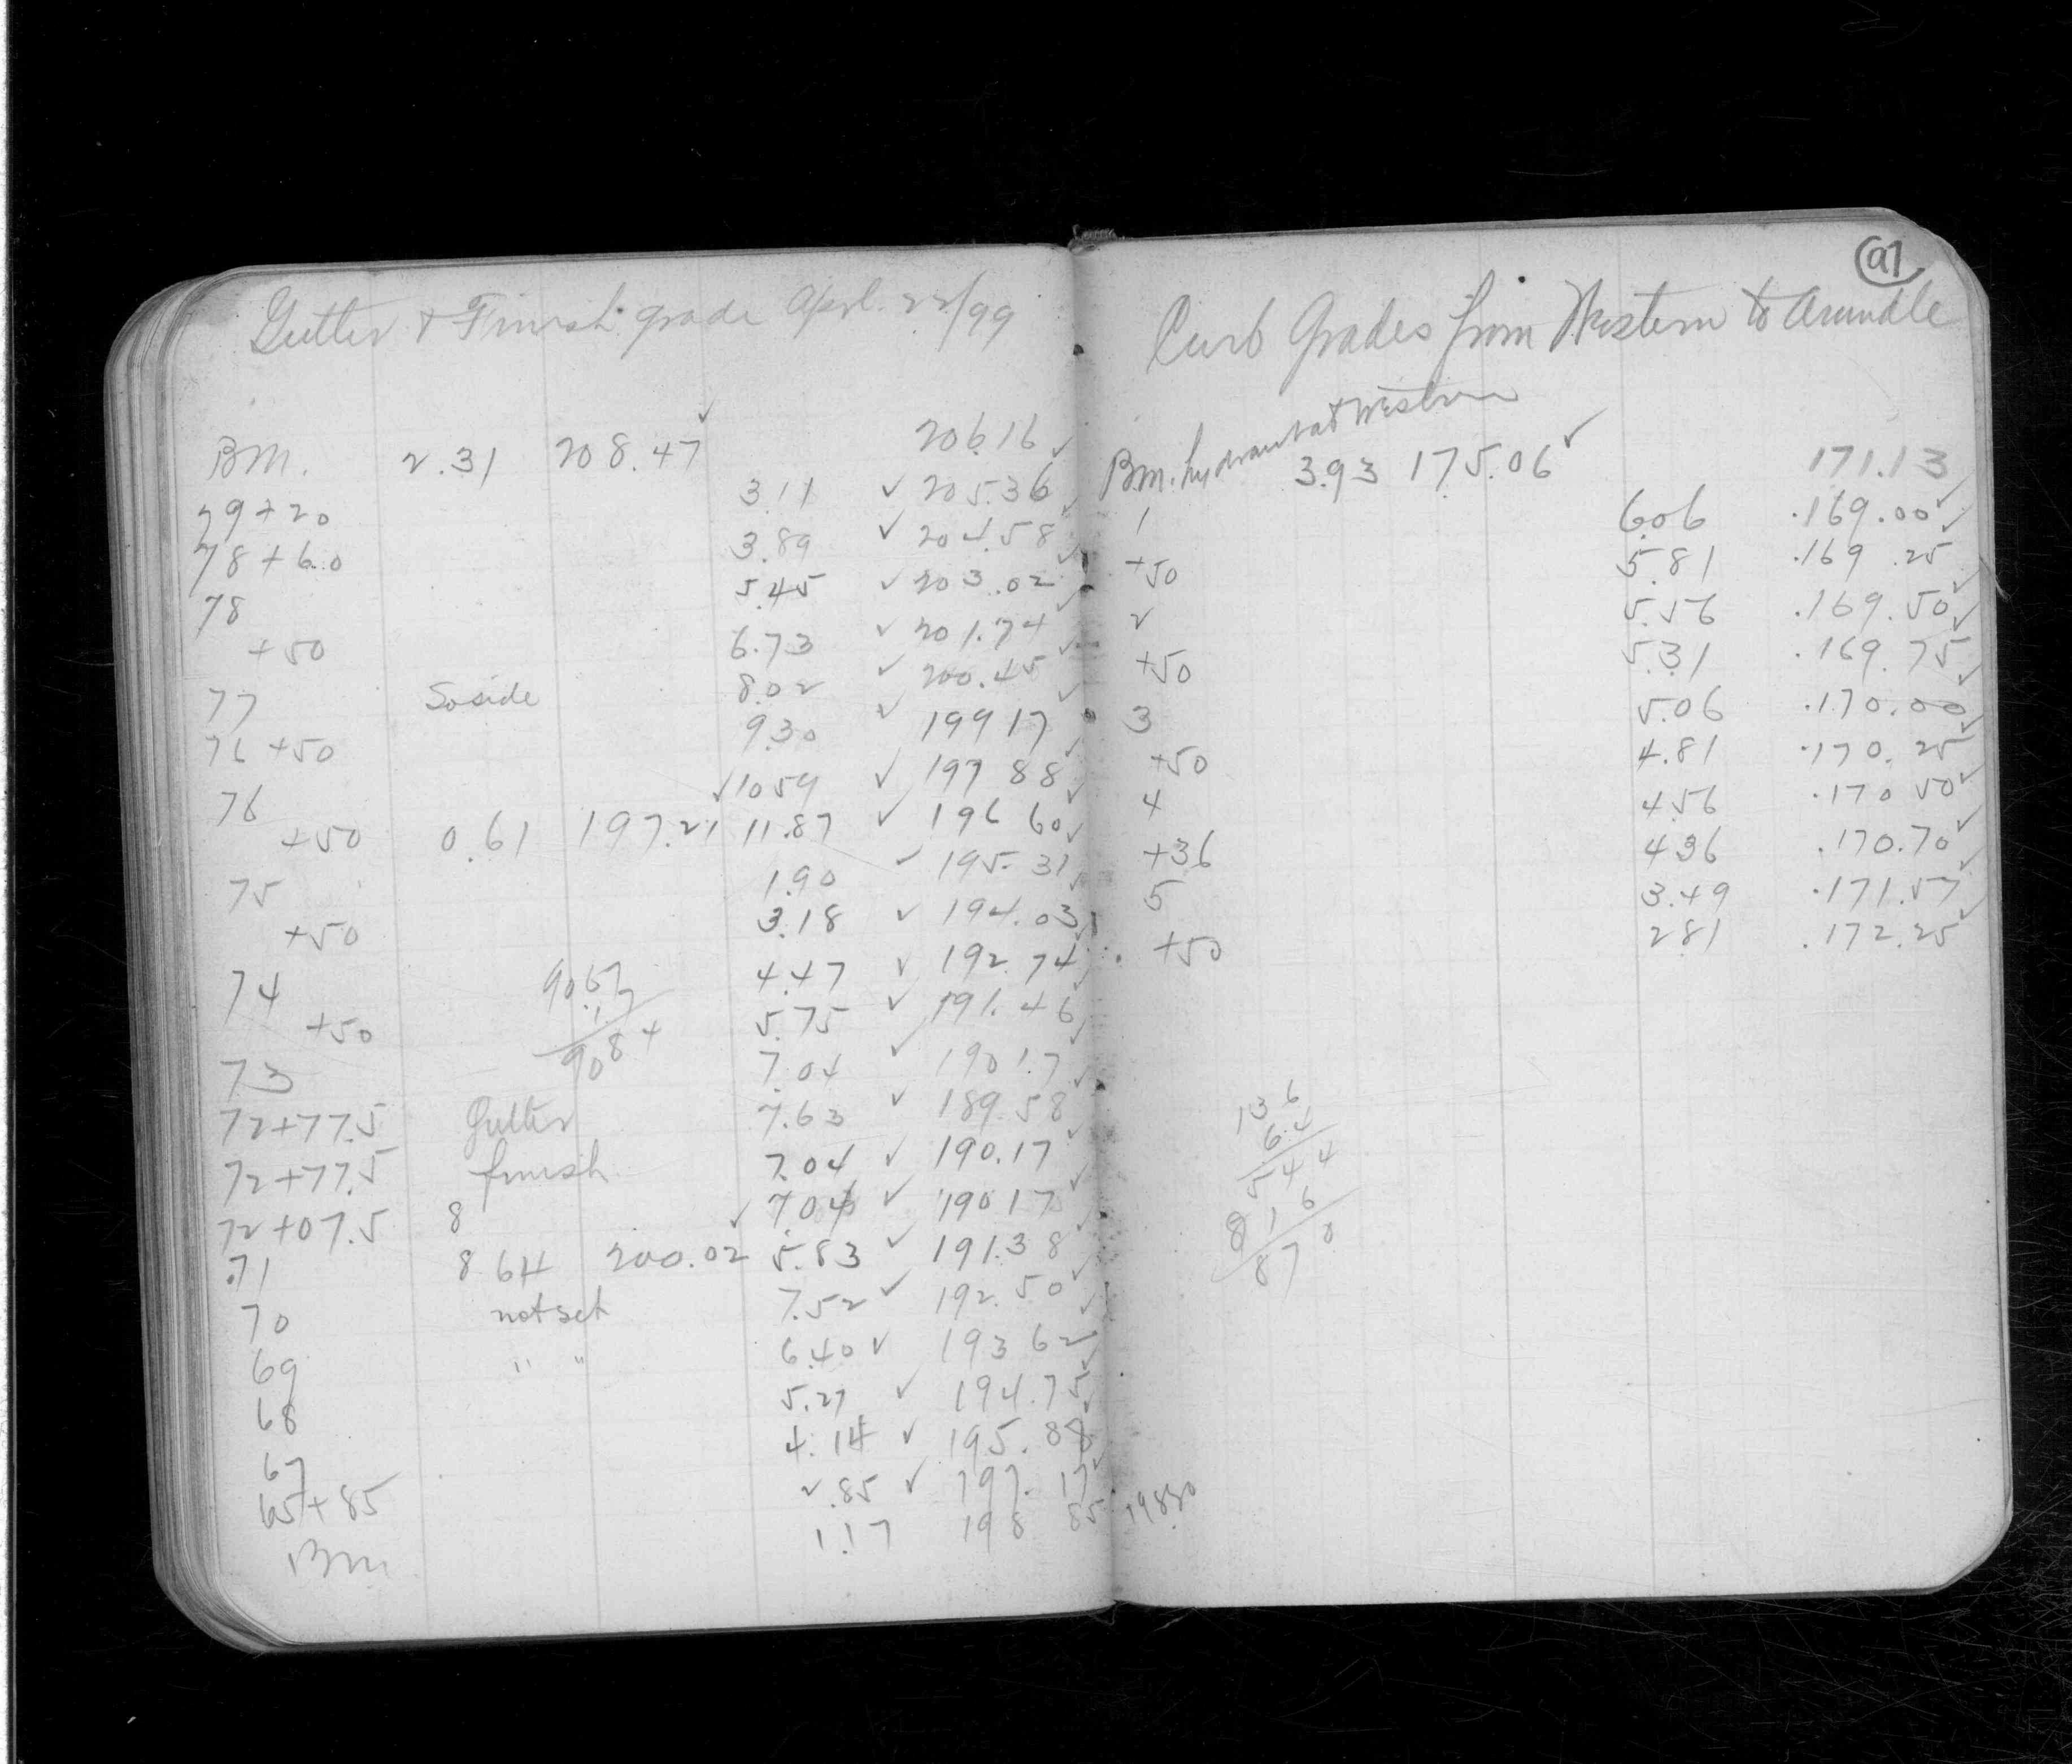 Gutter & Finish grade Apl. 22/99
BM. 2.31 208.47 ✓ 206.16
79+20 3.11 ✓ 205.36 ✓
78+60 3.89 ✓ 204.58 ✓
78 5.45 ✓ 203.02 ✓
+50 6.73 ✓ 201.74 ✓
77 So side 8.02 ✓ 200.45 ✓
76+50 9.30 ✓ 199 17 ✓
76 ✓ 10 59 ✓ 197 88 ✓
+50 0.61 197.21 11.87 ✓ 196 60 ✓
75 1.90 ✓ 195.31 ✓
+50 3.18 ✓ 194.03 ✓
74 4.47 ✓ 192.74 ✓
+50 5.75 ✓ 191.46 ✓
73 7.04 ✓ 190 1.7 ✓
72+77.5 Gutter 7.63 ✓ 189.58 ✓
72+77.5 finish 7.04 ✓ 190.17 ✓
72+07.5 8 ✓ 7.04 ✓ 190 17 ✓
71 8 64 200.02 5.83 ✓ 191.38 ✓
70 not set 7.52 ✓ 192.50 ✓
69 " " 6.40 ✓ 193 62 ✓
68 5.27 ✓ 194.75 ✓
67 4.14 ✓ 195.88 ✓
65+85 2.85 ✓ 197.17 ✓
BM 1.17 198 85 198 80
90.67
.17
90 84
97
Curb Grades from Western to Arundle
BM. hydrant at Western 3.93 175.06 ✓ 171.13
1 6.06 .169.00 ✓
+50 5.81 .169.25 ✓
2 5.56 .169.50 ✓
+50 5.31 .169.75 ✓
3 5.06 .170.00 ✓
+50 4.81 .170.25 ✓
4 4.56 .170 50 ✓
+36 4 36 .170.70 ✓
5 3.49 .171.57 ✓
+50 2 81 .172.25 ✓
136
6.4
544
816
870